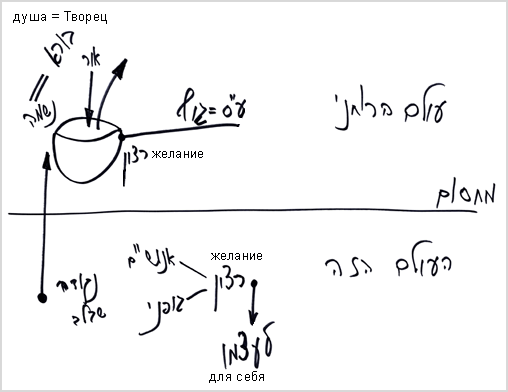 душа = Творец
בורא
אור
נשמה
ע"ס=גוף
עולם הרוחני
רצון желание
מחסום
желание
רצון
העולם הזה
נקודה
שבלב
גופני
לעצמו
для себя